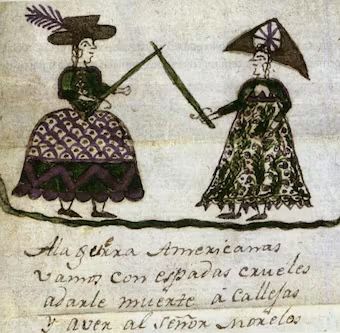 A la gerra Americanas
vamos con espadas crueles
a darle muerte á Callejas
y a ver al señor Morelos